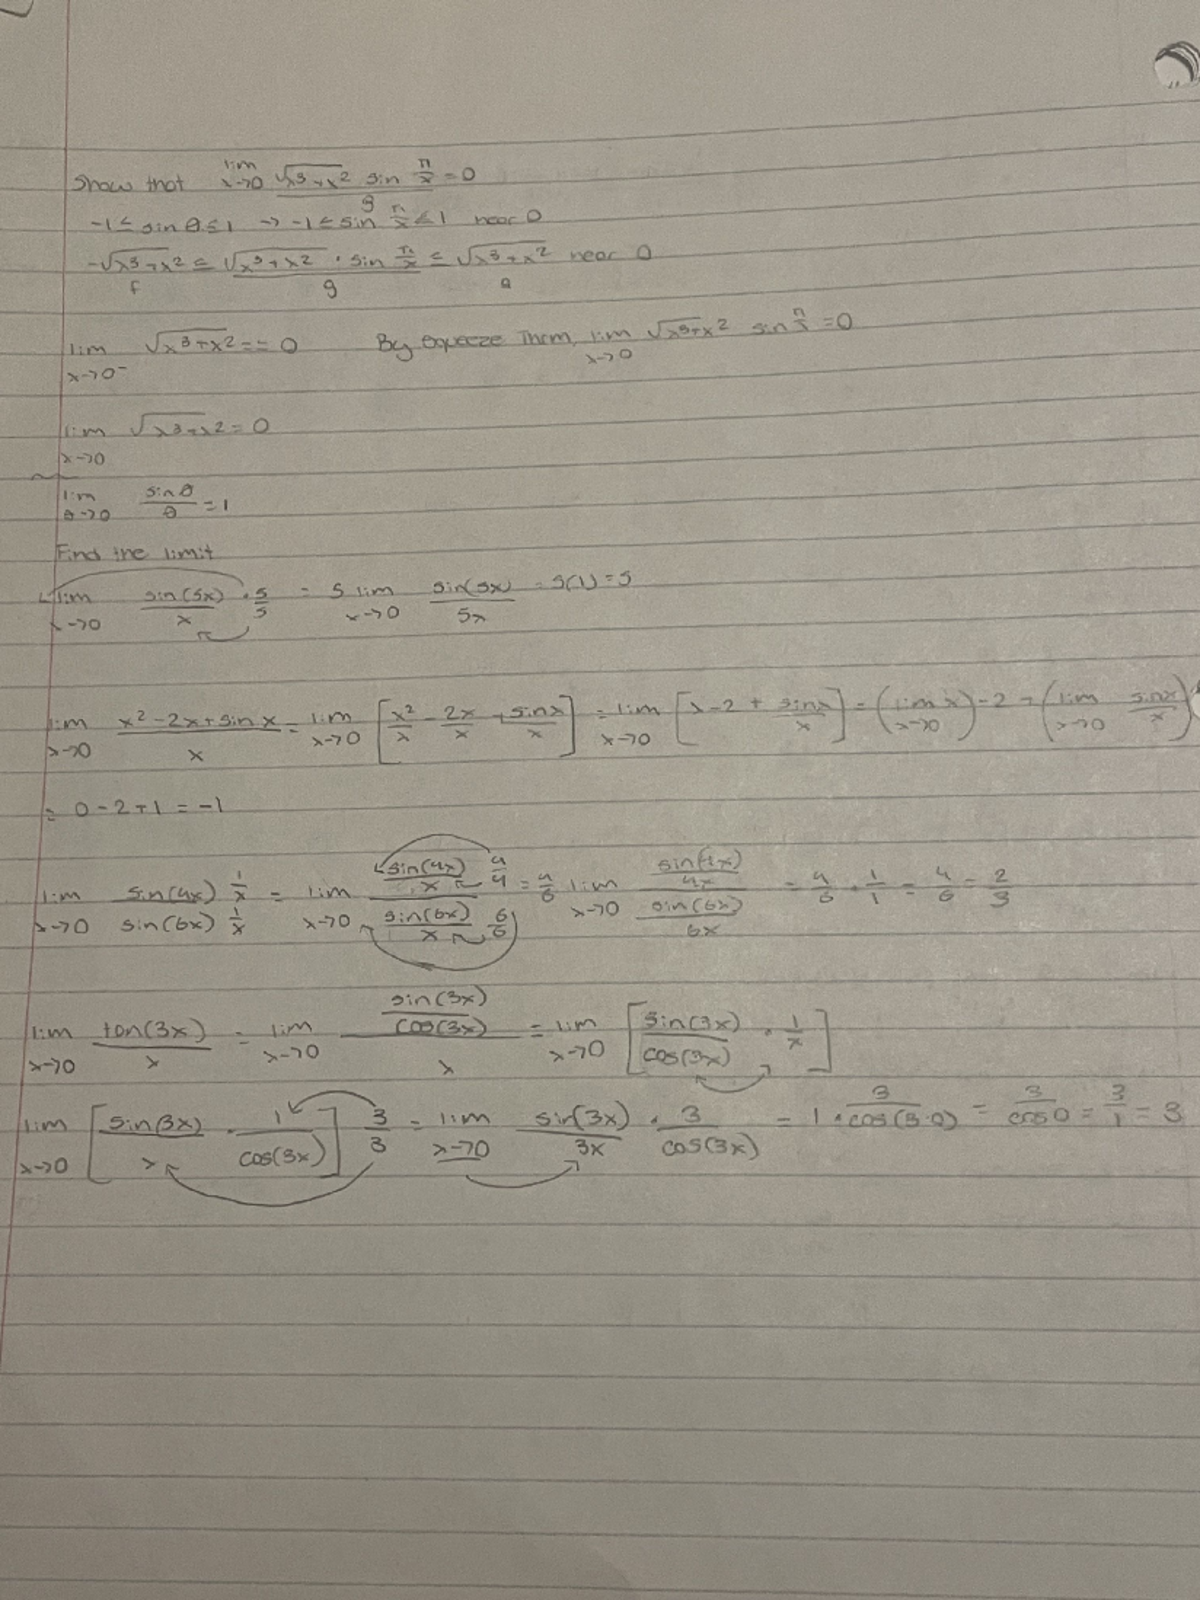 Show that lim x→0 √x³+x² sin π/x = 0
g
-1 ≤ sin θ ≤ 1 → -1 ≤ sin π/x ≤ 1 near 0
-√x³+x² ≤ √x³+x² · sin π/x ≤ √x³+x² near 0
f g a
lim x→0⁻ √x³+x² = = 0 By Squeeze Thrm, lim x→0 √x³+x² sin π/x = 0
lim x→0 √x³+x² = 0
lim θ→0 sin θ/θ = 1
Find the limit
lim x→0 sin(5x)/x · 5/5 = 5 lim x→0 sin(5x)/5x = 5(1) = 5
lim x→0 x²-2x+sin x/x = lim x→0 [x²/x - 2x/x + sin x/x] = lim x→0 [x-2 + sin x/x] = (lim x→0 x) - 2 + (lim x→0 sin x/x)
= 0-2+1 = -1
lim x→0 sin(4x) 1/x / sin(6x) 1/x = lim x→0 sin(4x)/x 4/4 / sin(6x)/x 6/6 = 4/6 lim x→0 sin(4x)/4x / sin(6x)/6x = 4/6 · 1/1 = 4/6 = 2/3
lim x→0 tan(3x)/x = lim x→0 sin(3x)/cos(3x) / x = lim x→0 [sin(3x)/cos(3x) · 1/x]
lim x→0 [sin(3x)/x · 1/cos(3x)] 3/3 = lim x→0 sin(3x)/3x · 3/cos(3x) = 1 · 3/cos(3·0) = 3/cos 0 = 3/1 = 3